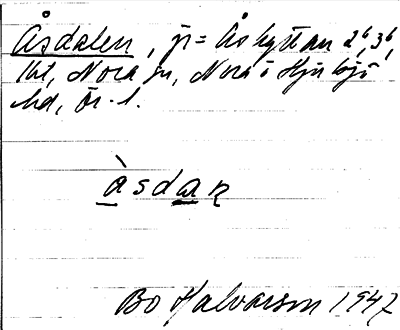 Åsdalen, jr = Åshyttan 2⁶, 3⁶,
1kt, Nora sn, Nora o Hjulsjö
hd, Ör. l.
àsdaʀ
Bo Halvarson 1947